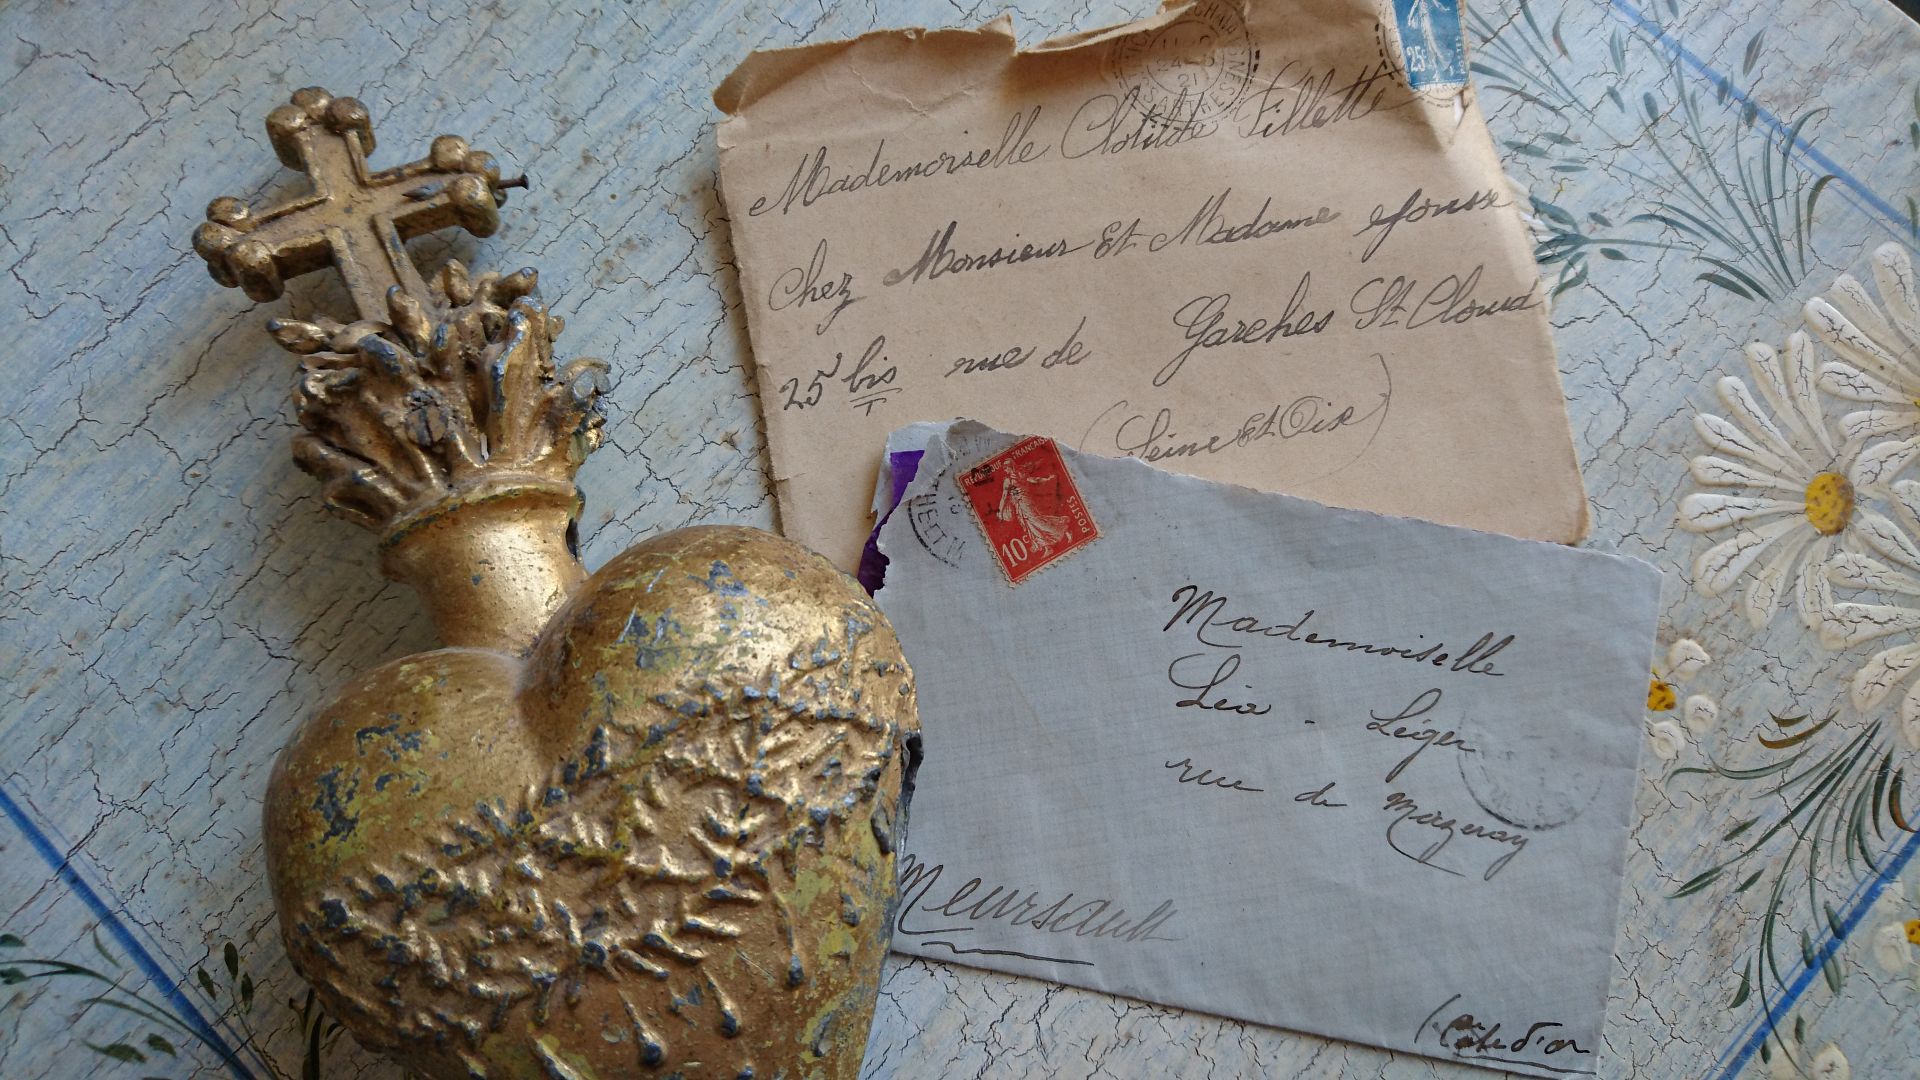 25c
24-5
21
Mademoiselle Clotilde Fillette
Chez Monsieur Et Madame
25 bis rue de Garches St Cloud
(Seine Et Oise)
REPUBLIQUE FRANÇAISE
POSTES
10c
Mademoiselle
Léa - Léger
rue de Mazeray
Meursault
(Côte d'or